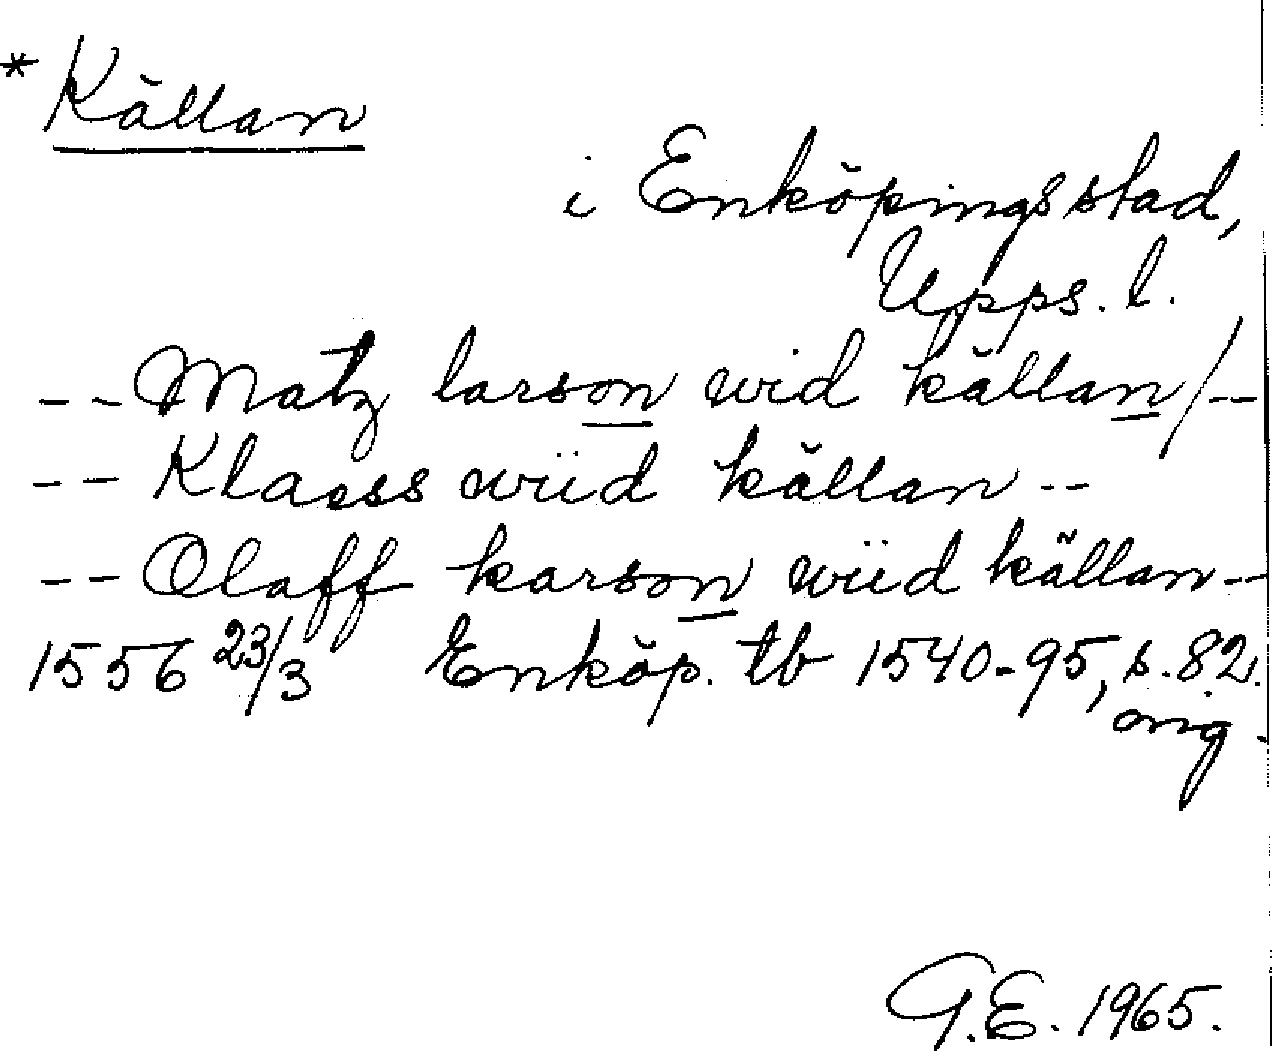 * Källan
i Enköpings stad,
Upps. l.
-- Matz larson wid källan/--
-- Klaess wiid källan --
-- Olaff karson wiid källan --
1556 23/3 Enköp. tb 1540-95, s. 82.
orig.
G.E. 1965.